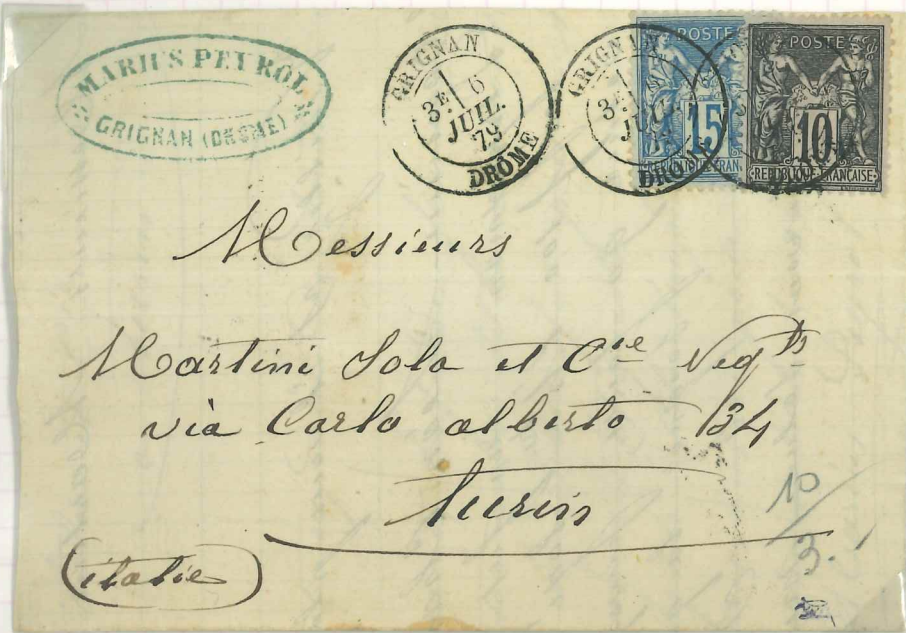 MARIUS PEYROL
GRIGNAN (DRÔME)
GRIGNAN
3E 6
JUIL.
79
DRÔME
GRIGNAN
3E
JUIL
DRÔME
POSTE
15
REPUBLIQUE FRAN
POSTE
10
REPUBLIQUE FRANCAISE
Messieurs
Martini Sola et Cie Negts
via Carlo alberto 34
Turin
(italie)
10
3.